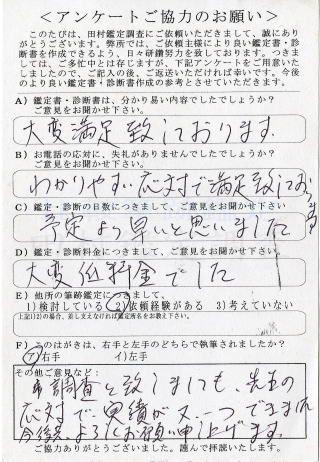 ＜アンケートご協力のお願い＞
このたびは、田村鑑定調査にご依頼いただきまして、誠にあり
がとうございます。弊所では、ご依頼主様により良い鑑定書・診
断書を作成できるよう、日々研鑽努力を致しております。つきまし
ては、ご多忙中とは存じますが、下記アンケートをご用意いた
しましたので、ご記入の後、ご返送いただければ幸いです。今後
のより良い鑑定書・診断書作成の参考とさせていただきます。
A) 鑑定書・診断書は、分かり易い内容でしたでしょうか？
ご意見をお聞かせ下さい。
大変満足致しております。
B) お電話の応対に、失礼がありませんでしたでしょうか？
ご意見をお聞かせ下さい。
わかりやすい応対で満足致しております
C) 鑑定・診断の日数につきまして、ご意見をお聞かせ下さい
予定より早いと思いました
D) 鑑定・診断料金につきまして、ご意見をお聞かせ下さい
大変低料金でした
E) 他所の筆跡鑑定につきまして、
1)検討している 2)依頼経験がある 3)考えていない
上記1)2)の場合、差し支えなければ鑑定所名をお教え下さい。
F) このはがきは、右手と左手のどちらで執筆されましたか？
ア)右手 イ)左手
その他ご意見など：
調査と致しましても、先生の
応対で、実績が又一つできました
今後、よろしくお願い申し上げます。
ご協力ありがとうございました。謹んで拝読いたします。